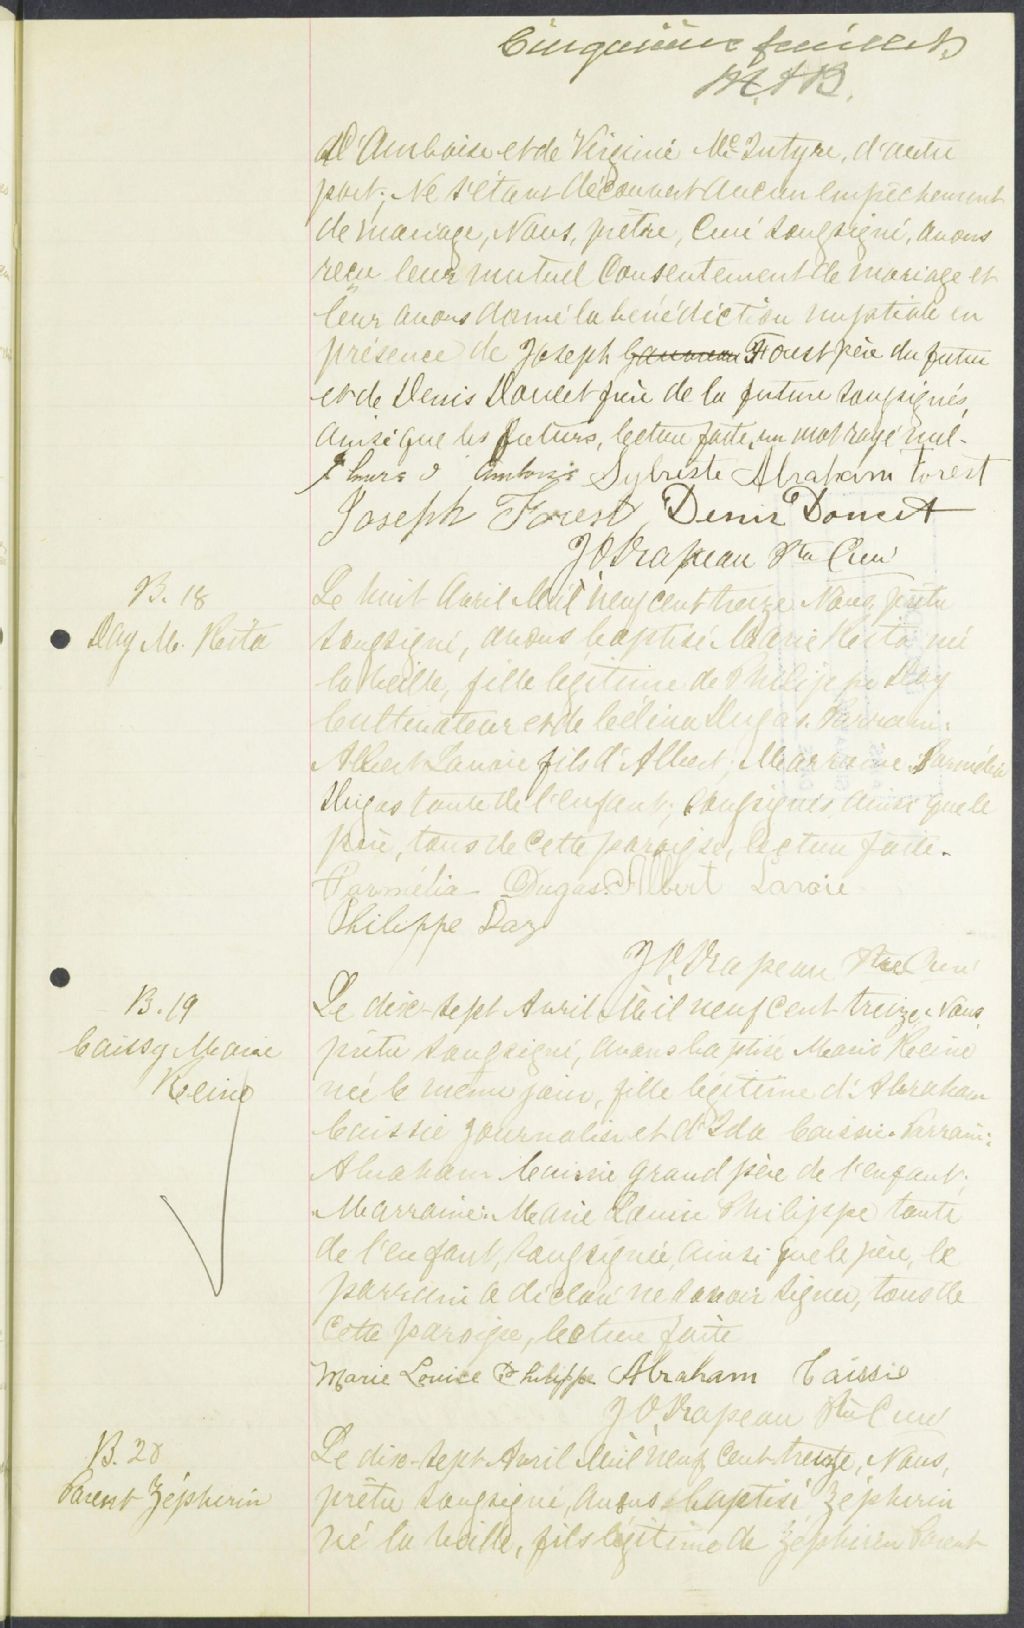 Cinquième feuillet
D'Amboise et de Virginie McIntyre, d'autre
part; Ne s'étant découvert aucun empêchement
de mariage, Nous, prêtre, Curé Soussigné, avons
reçu leur mutuel Consentement de mariage et
leur avons donné la bénédiction nuptiale en
présence de Joseph Forest père du futur
et de Denis Doucet frère de la future soussignés,
ainsi que les futurs, lecture faite, un mot rayé nul.
Sylvestre Abraham Forest
Joseph Forest Denis Doucet
J O Drapeau Ptre Curé
B. 18
Day M. Resta
Le huit Avril Mil neuf cent treize Nous, prêtre
soussigné, avons baptisé Marie Resta né
la veille, fille légitime de Philippe Day
Cultivateur et de Célina Dugas. Parrain:
Albert Lavoie fils d'Albert; Marraine: Parmélia
Dugas tante de l'enfant; soussignés ainsi que le
père, tous de cette paroisse, lecture faite.
Parmélia Dugas. Albert Lavoie
Philippe Day
J O. Drapeau Ptre Curé
B. 19
Caissy Marie
Réline
Le dix-sept Avril Mil neuf cent treize, Nous,
prêtre soussigné, avons baptisé Marie Réline
née le même jour, fille légitime d'Abraham
Caissie Journalier et d'Ida Caissie. Parrain:
Abraham Caissie grand père de l'enfant;
Marraine: Marie Louise Philippe tante
de l'enfant, soussignée, ainsi que le père, le
parrain a déclaré ne savoir signer, tous de
cette paroisse, lecture faite
Marie Louise Philippe Abraham Caissie
J O. Drapeau Ptre Curé
B. 20
Parent Zéphirin
Le dix-sept Avril Mil neuf cent treize, Nous,
prêtre soussigné, avons baptisé Zéphirin
né la veille, fils légitime de Zéphirin Parent